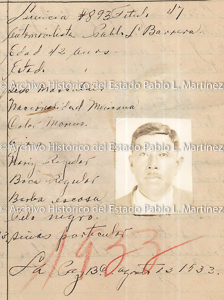 Licencia #893 Título 47
Automovilista Pablo L. Barrera
Edad 42 años
Estado
Archivo Histórico del Estado Pablo L. Martínez
Nacionalidad Mexicana
Color Moreno
Archivo Histórico del Estado Pablo L. Martínez
Nariz Regular
Boca Regular
Barba escasa
Pelo negro
Archivo Histórico de Estado Pablo L. Martínez
señas particular
1933
La Paz 13 de agosto de 1933.